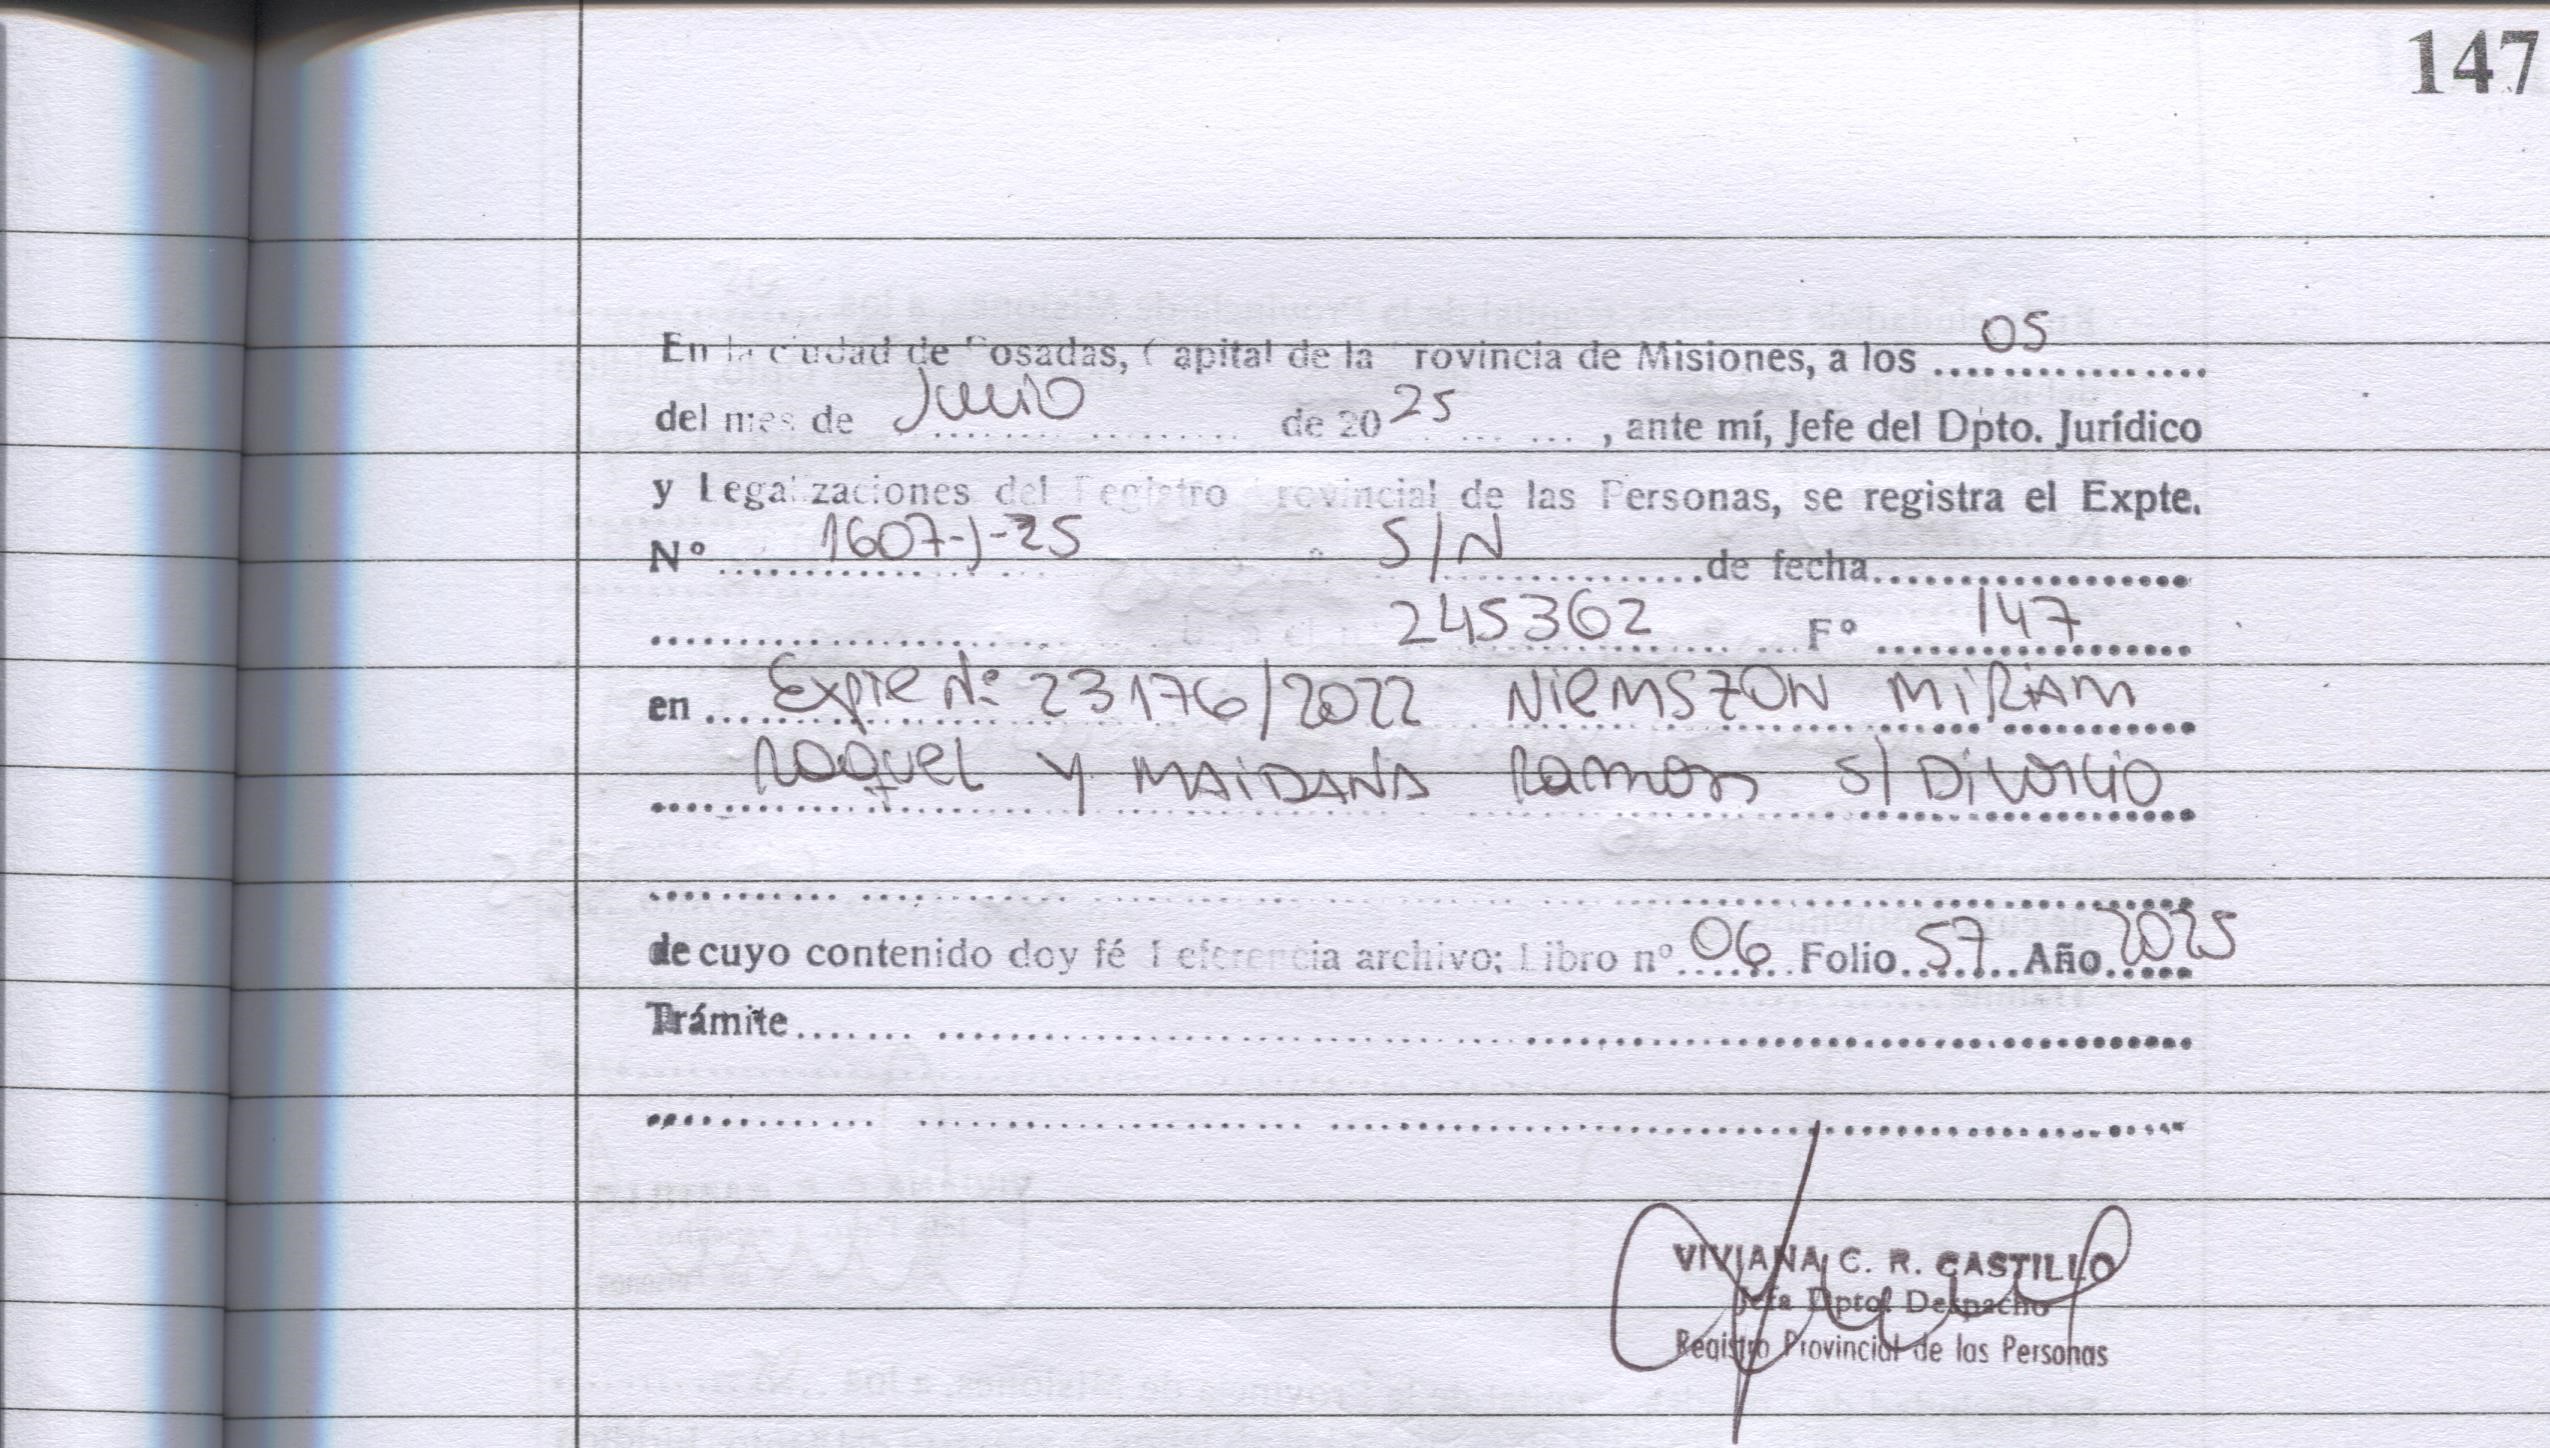 147
En la ciudad de Posadas, Capital de la Provincia de Misiones, a los 05
del mes de Junio de 2025, ante mí, Jefe del Dpto. Jurídico
y Legalizaciones del Registro Provincial de las Personas, se registra el Expte.
Nº 1607-J-25 S/N de fecha
245362 Fº 147
en Expte Nº 23176/2022 NIEMSZON MIRIAM
Raquel Y MAIDANA Ramon S/ DIVORCIO
de cuyo contenido doy fé Referencia archivo; Libro nº 06 Folio 57 Año 2025
Trámite
VIVIANA C. R. CASTILLO
Jefa Dpto. Despacho
Registro Provincial de las Personas